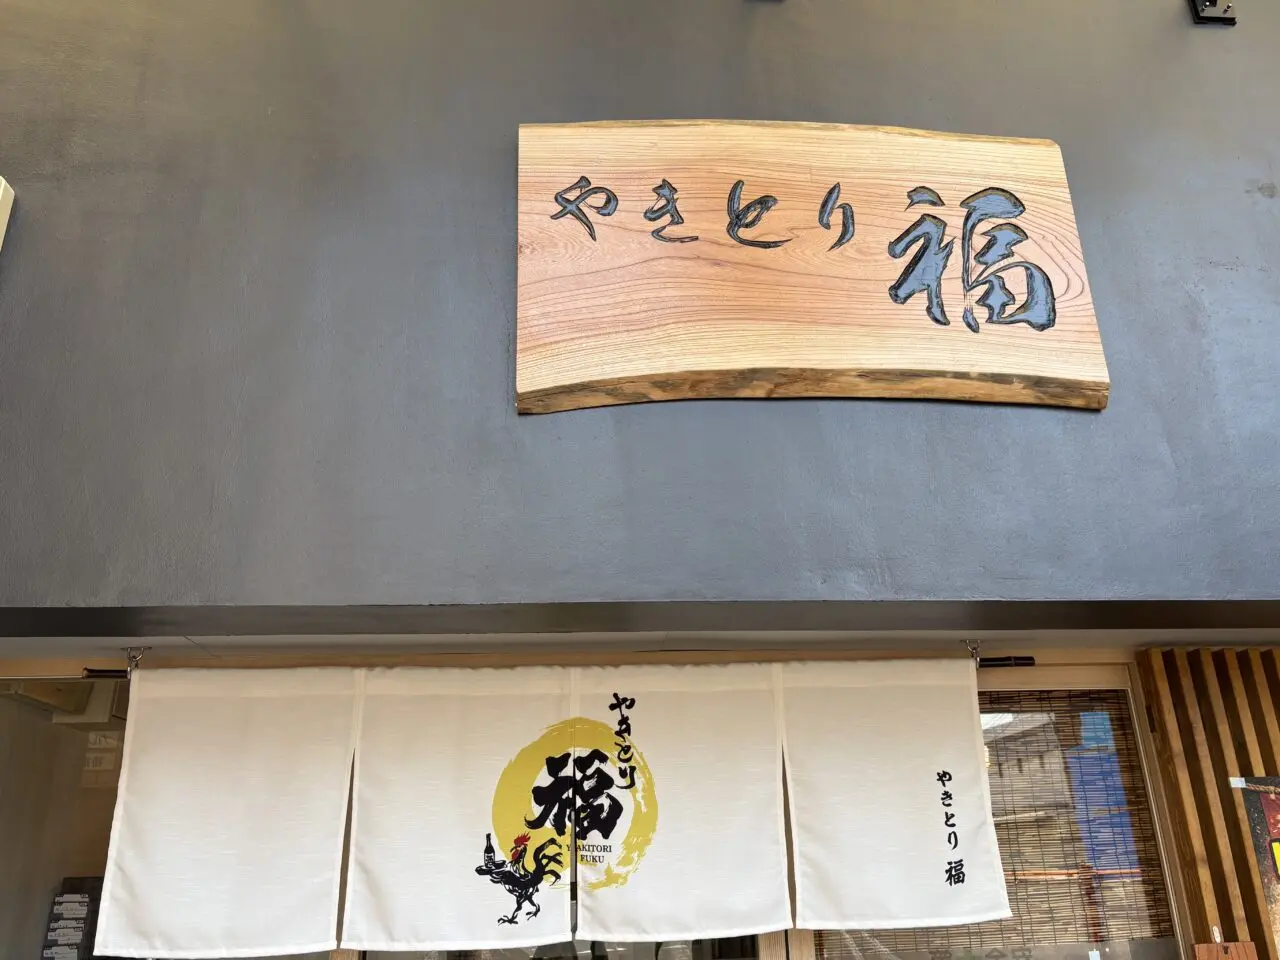 やきとり 福
やきとり
福
YAKITORI
FUKU
やきとり 福